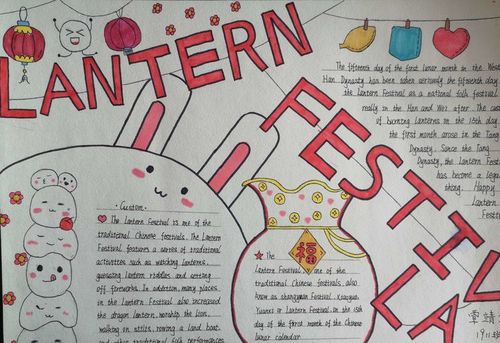 LANTERN
FESTIVAL
The fifteenth day of the first lunar month in the West
Han Dynasty has been taken seriously, the fifteenth day
the Lantern Festival as a national folk festival
really in the Han and Wei after. The cust
of burning lanterns on the 15th day
the first month arose in the Tang
Dynasty. Since the Tang
Dynasty, the Lantern Fest
has become a lega
thing. Happy
Lantern
Festi
Custom
The Lantern Festival is one of the
traditional Chinese festivals. The Lantern
Festival features a series of traditional
activities such as watching lanterns,
guessing lantern riddles and setting
off fireworks. In addition, many places
in the Lantern Festival also increased
the dragon lantern, worship the lion,
walking on stilts, rowing a land boat
and other traditional folk performances
The
Lantern Festival, one of the
traditional Chinese festivals, also
know as shangyuan Festival, Xiaoyue,
Yuanxi or Lantern Festival. In the 15th
day of the first month of the Chinese
lunar calendar
福